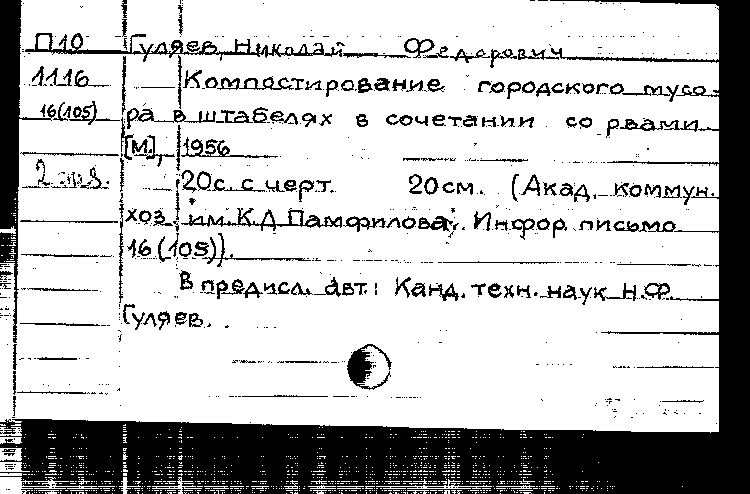 П10 Гуляев, Николай Федорович
1116 Компостирование городского мусо-
16(105) ра в штабелях в сочетании со рвами.
[М.], 1956
2 экз. 20с. с черт. 20см. (Акад. коммун.
хоз. им. К.Д. Памфилова. Инфор. письмо
16 (105)).
В предисл. авт.: Канд. техн. наук Н.Ф.
Гуляев.